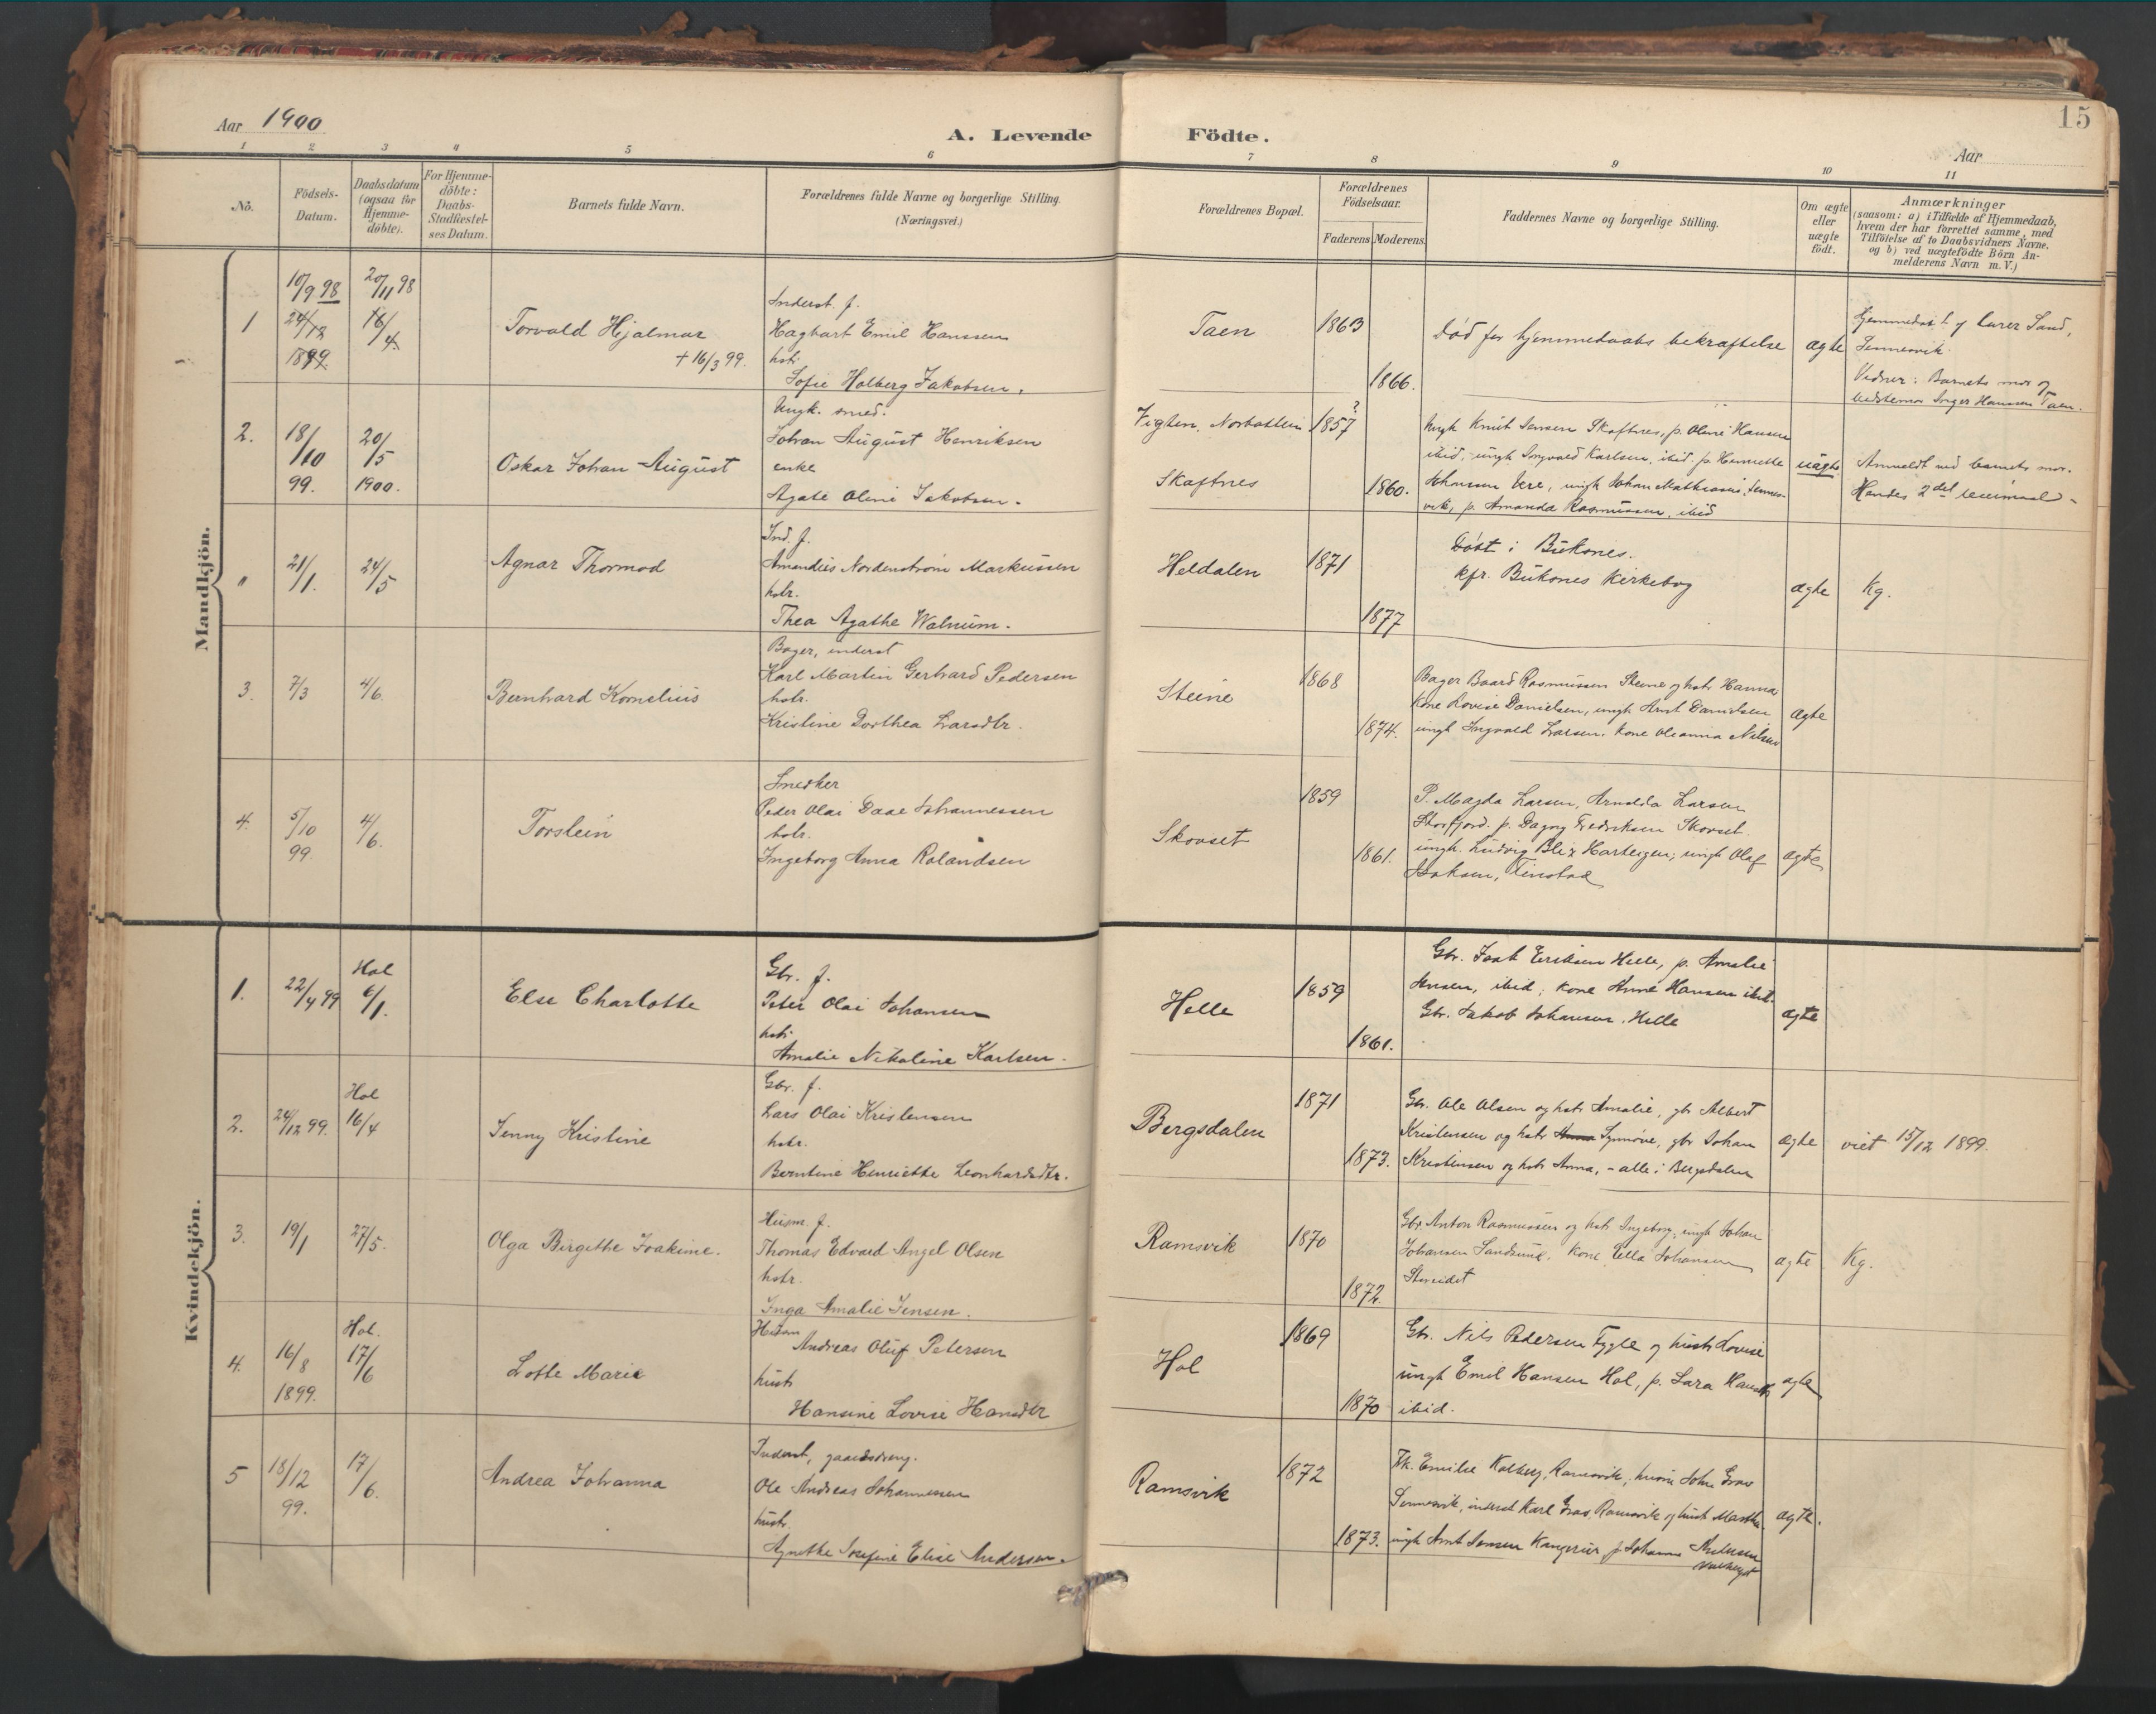 15
Aar 1900
A. Levende Födte.
Aar
1 2 3 4 5 6 7 8 9 10 11
No.
Födsels-
Datum.
Daabsdatum
(ogsaa for
Hjemme-
döbte).
For Hjemme-
döbte:
Daabs-
Stadfæstel-
ses Datum.
Barnets fulde Navn.
Forældrenes fulde Navne og borgerlige Stilling.
(Næringsvei.)
Forældrenes Bopæl.
Forældrenes
Födselsaar.
Faderens. Moderens.
Faddernes Navne og borgerlige Stilling.
Om ægte
eller
uægte
födt.
Anmærkninger
(saasom: a) i Tilfælde af Hjemmedaab,
hvem der har forrettet samme, med
Tilföielse af to Daabsvidners Navne.
og b) ved uægtefödte Börn An-
melderens Navn m. V.)
Mandkjön.
1
10/9 98
24/12
1899
20/11 98
16/4
Torvald Hjalmar
+ 16/3 99.
Inderst. f.
Hagbart Emil Hanssen
hstr.
Sofie Holberg Jakobsen.
Taen
1863
1866.
Död før hjemmedaabs bekræftelse
ægte
Hjemmedøbt af lærer Sand,
Sennesvik.
Vidner: Barnets mor og
bedstemor Inger Hanssen Taen.
2.
18/10
99.
20/5
1900.
Oskar Johan August
Ungk. smed.
Johan August Henriksen
enke
Agate Oline Jakobsen.
Vigten, Norbotten
Skaftnes
1857?
1860.
Ungk Knut Jensen Skaftnes, p. Oline Hansen
ibid, ungk Ingvald Karlsen, ibid. p. Henriette
Johansen Vere, ungk Johan Mathisen, Sennes-
vik, p. Amanda Rasmussen, ibid
uægte
Anmeldt ved barnets mor.
Hendes 2det leiermaal
"
21/1.
24/5
Agnar Thormod
Ind. f.
Amandus Nordenstrøm Markussen
hstr.
Thea Agathe Walnum.
Heldalen
1871
1877
Döbt i Buksnes.
kfr. Buksnes Kirkebog
ægte
Kg.
3.
7/3
4/6.
Bernhard Kornelius
Bager, inderst
Karl Martin Gerhard Pedersen
hstr.
Kristine Dorthea Larsdtr.
Steine
1868
1874.
Bager Baard Rasmussen Steine og hstr Hanna
Kone Lovise Danielsen, ungk Arnt Danielsen
ungk Ingvald Larsen, kone Oleanna Nilsen
ægte
4.
5/10
99.
4/6.
Torstein
Snedker
Peder Olai Daae Johannessen
hstr.
Ingeborg Anna Rolandsen
Skovset
1859
1861.
P. Magda Larsen, Arnolda Larsen
Storfjord. p. Dagny Fredriksen Skovset.
ungk. Ludvig Blix Hartvigen; ungk Olaf
Isaksen, Finstad
ægte
Kvindekjön.
1.
22/4 99
Hol
6/1.
Else Charlotte
Gbr. f.
Peter Olai Johansen
hstr
Amalie Nikoline Karlsen.
Helle
1859
1861.
Gbr. Isak Eriksen Helle, p. Amalie
Jensen, ibid; kone Anne Hansen ibid.
Gbr. Jakob Johansen, Helle
ægte
2.
24/12 99.
Hol
16/4
Jenny Kristine
Gbr. f.
Lars Olai Kristensen
hstr.
Berntine Henriette Leonhardsdtr.
Bergsdalen
1871
1873.
Gbr. Ole Olsen og hstr Amalie, gbr Albert
Kristensen og hstr Anna Synnøve, gbr Johan
Kristensen og hstr Anna, - alle i Bergsdalen
ægte
viet 15/12 1899.
3.
19/1
27/5.
Olga Birgitte Joakime.
Husm. f.
Thomas Edvard Angel Olsen
hstr.
Inga Amalie Jensen.
Ramsvik
1870
1872.
Gbr. Anton Rasmussen og hstr Ingeborg, ungk Johan
Johansen Sandsund. Kone Ella Johansen
Steinidet
ægte
Kg.
4.
16/8
1899.
Hol.
17/6
Lotte Marie
Husm
Andreas Oluf Petersen
hustr
Hansine Lovise Hansdtr
Hol
1869
1870
Gbr. Nils Pedersen Fygle og hustr Lovise
ungk Emil Hansen Hol, p. Lara Hansen
ibid.
ægte
5
18/12
99.
17/6.
Andrea Johanna
Inderst, gaardsdreng.
Ole Andreas Johannessen
hustr.
Agnethe Josefine Elise Andersen.
Ramsvik
1872
1873.
Fk. Emilie Kolberg, Ramsvik, husm John Grav
Sennesvik, inderst Karl Grav, Ramsvik og hustr Martha
ungk Arnt Jensen p Johanna
ægte.